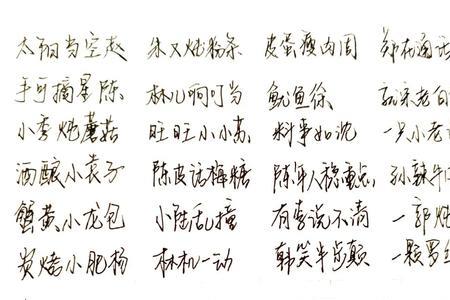 太阳当空赵 朱又炖粉条 皮蛋瘦肉周 郑在通话
手可摘星陈 林儿响叮当 鱿鱼徐 老白
小李炖蘑菇 旺旺小小苏 料事如沈 一只小老
酒酿小袁子 陈皮话梅糖 陈年人稳重点 孙辣牛
蟹黄小龙包 小陆乱撞 有李说不清 一郭炖
炭烤小肥杨 林机一动 韩笑半步颠 一颗罗